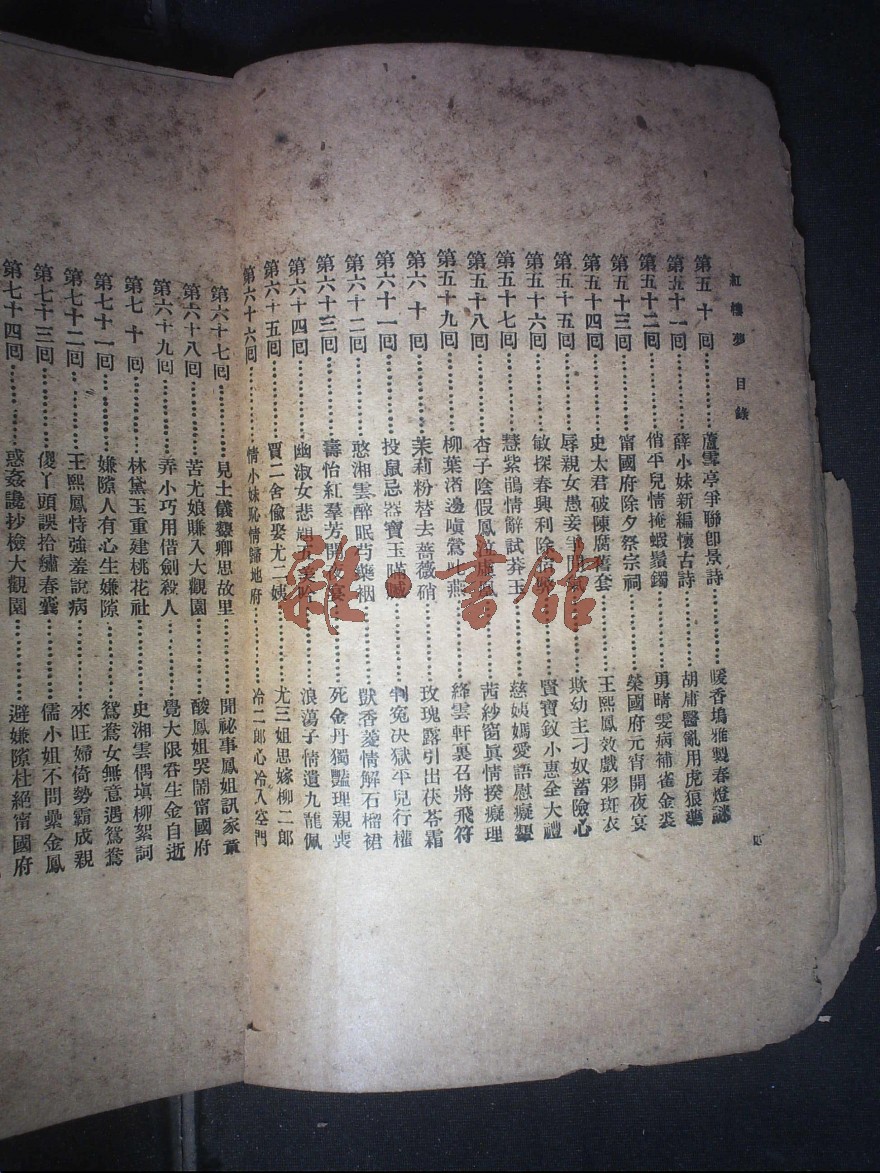 紅樓夢目錄
第五十回……蘆雪亭爭聯卽景詩……暖香塢雅製春燈謎
第五十一回……薛小妹新編懷古詩……胡庸醫亂用虎狼藥
第五十二回……俏平兒情掩蝦鬚鐲……勇晴雯病補雀金裘
第五十三回……甯國府除夕祭宗祠……榮國府元宵開夜宴
第五十四回……史太君破陳腐舊套……王熙鳳效戲彩斑衣
第五十五回……辱親女愚妾爭閒氣……欺幼主刁奴蓄險心
第五十六回……敏探春興利除宿弊……賢寶釵小惠全大禮
第五十七回……慧紫鵑情辭試莽玉……慈姨媽愛語慰癡顰
第五十八回……杏子陰假鳳泣虛凰……茜紗窗眞情揆癡理
第五十九回……柳葉渚邊嗔鶯叱燕……絳雲軒裏召將飛符
第六十回……茉莉粉替去薔薇硝……玫瑰露引出茯苓霜
第六十一回……投鼠忌器寶玉瞞贓……判冤決獄平兒行權
第六十二回……憨湘雲醉眠芍藥裀……獃香菱情解石榴裙
第六十三回……壽怡紅羣芳開夜宴……死金丹獨豔理親喪
第六十四回……幽淑女悲題五美吟……浪蕩子情遺九龍佩
第六十五回……賈二舍偸娶尤二姨……尤三姐思嫁柳二郎
第六十六回……情小妹恥情歸地府……冷二郎心冷入空門
第六十七回……見土儀顰卿思故里……聞祕事鳳姐訊家童
第六十八回……苦尤娘賺入大觀園……酸鳳姐哭鬧甯國府
第六十九回……弄小巧用借劍殺人……覺大限吞生金自逝
第七十回……林黛玉重建桃花社……史湘雲偶塡柳絮詞
第七十一回……嫌隙人有心生嫌隙……鴛鴦女無意遇鴛鴦
第七十二回……王熙鳳恃強羞說病……來旺婦倚勢霸成親
第七十三回……傻丫頭誤拾繡春囊……儒小姐不問纍金鳳
第七十四回……惑姦讒抄檢大觀園……避嫌隙杜絕甯國府
雜·書館